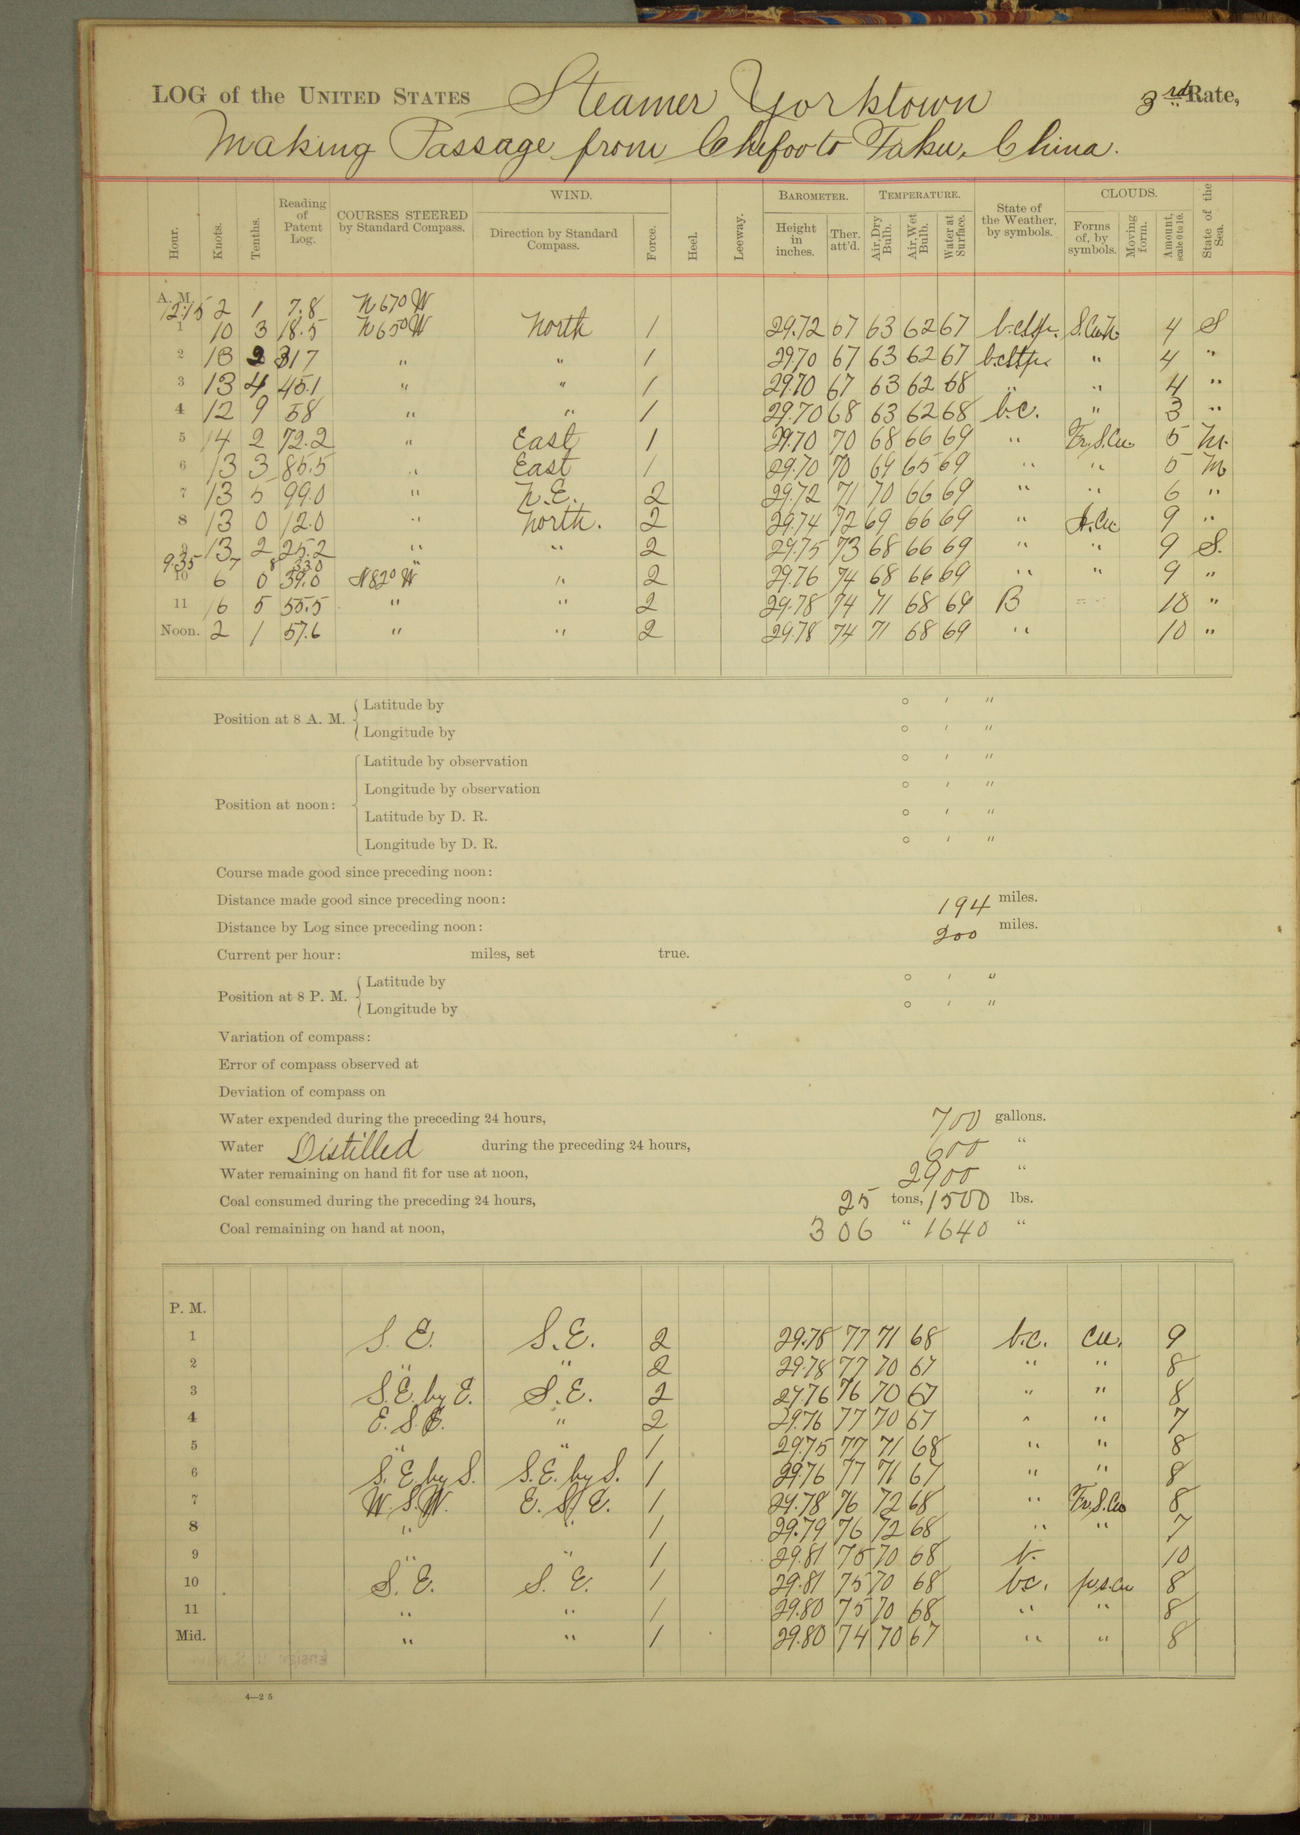 LOG of the UNITED STATES Steamer Yorktown 3rd Rate,
Making Passage from Chefoo to Taku, China.
Hour. Knots. Tenths. Reading of Patent Log. COURSES STEERED by Standard Compass. WIND. Direction by Standard Compass. Force. Heel. Leeway. BAROMETER. Height in inches. Ther. att'd. TEMPERATURE. Air, Dry Bulb. Air, Wet Bulb. Water at Surface. State of the Weather, by symbols. CLOUDS. Forms of, by symbols. Moving form. Amount, scale 0 to 10. State of the Sea.
A. M.
12.15 2 1 7.8 N 67° W
1 10 3 18.5 N 65° W North 1 29.72 67 63 62 67 4 S
2 13 2 317 " " 1 29.70 67 63 62 67 " 4 "
3 13 4 45.1 " " 1 29.70 67 63 62 68 " " 4 "
4 12 9 58 " " 1 29.70 68 63 62 68 b.c. " 3 "
5 14 2 72.2 " East 1 29.70 70 68 66 69 " Fr.S.Cu. 5 M.
6 13 3 85.5 " East 1 29.70 70 69 65 69 " " 5 M
7 13 5 99.0 " N.E. 2 29.72 71 70 66 69 " " 6 "
8 13 0 12.0 " North. 2 29.74 72 69 66 69 " 9 "
9 13 2 25.2 " " 2 29.75 73 68 66 69 " " 9 S.
9.35 7 8 33.0 "
10 6 0 39.0 N 82° W " 2 29.76 74 68 66 69 " " 9 "
11 16 5 55.5 " " 2 29.78 74 71 68 69 B 10 "
Noon. 2 1 57.6 " " 2 29.78 74 71 68 69 " 10 "
Position at 8 A. M. Latitude by ° ′ ″
Longitude by ° ′ ″
Position at noon: Latitude by observation ° ′ ″
Longitude by observation ° ′ ″
Latitude by D. R. ° ′ ″
Longitude by D. R. ° ′ ″
Course made good since preceding noon:
Distance made good since preceding noon: 194 miles.
Distance by Log since preceding noon: 200 miles.
Current per hour: miles, set true.
Position at 8 P. M. Latitude by ° ′ ″
Longitude by ° ′ ″
Variation of compass:
Error of compass observed at
Deviation of compass on
Water expended during the preceding 24 hours, 700 gallons.
Water Distilled during the preceding 24 hours, 600 "
Water remaining on hand fit for use at noon, 2900 "
Coal consumed during the preceding 24 hours, 25 tons, 1500 lbs.
Coal remaining on hand at noon, 306 " 1640 "
P. M.
1 S. E. S. E. 2 29.78 77 71 68 b.c. cu. 9
2 " " 2 29.78 77 70 67 " " 8
3 S.E. by E. S. E. 2 27.76 76 70 67 " " 8
4 E. S. E. " 2 29.76 77 70 67 " " 7
5 " " 1 29.75 77 71 68 " " 8
6 S. E. by S. S. E. by S. 1 29.76 77 71 67 " " 8
7 W. S. W. E. S. E. 1 29.78 76 72 68 " Fr.S.Cu 8
8 " " 1 29.79 76 72 68 " " 7
9 " " 1 29.81 75 70 68 b. 10
10 S. E. S. E. 1 29.81 75 70 68 b.c. 8
11 " " 1 29.80 75 70 68 " " 8
Mid. " " 1 29.80 74 70 67 " " 8
4—2 5